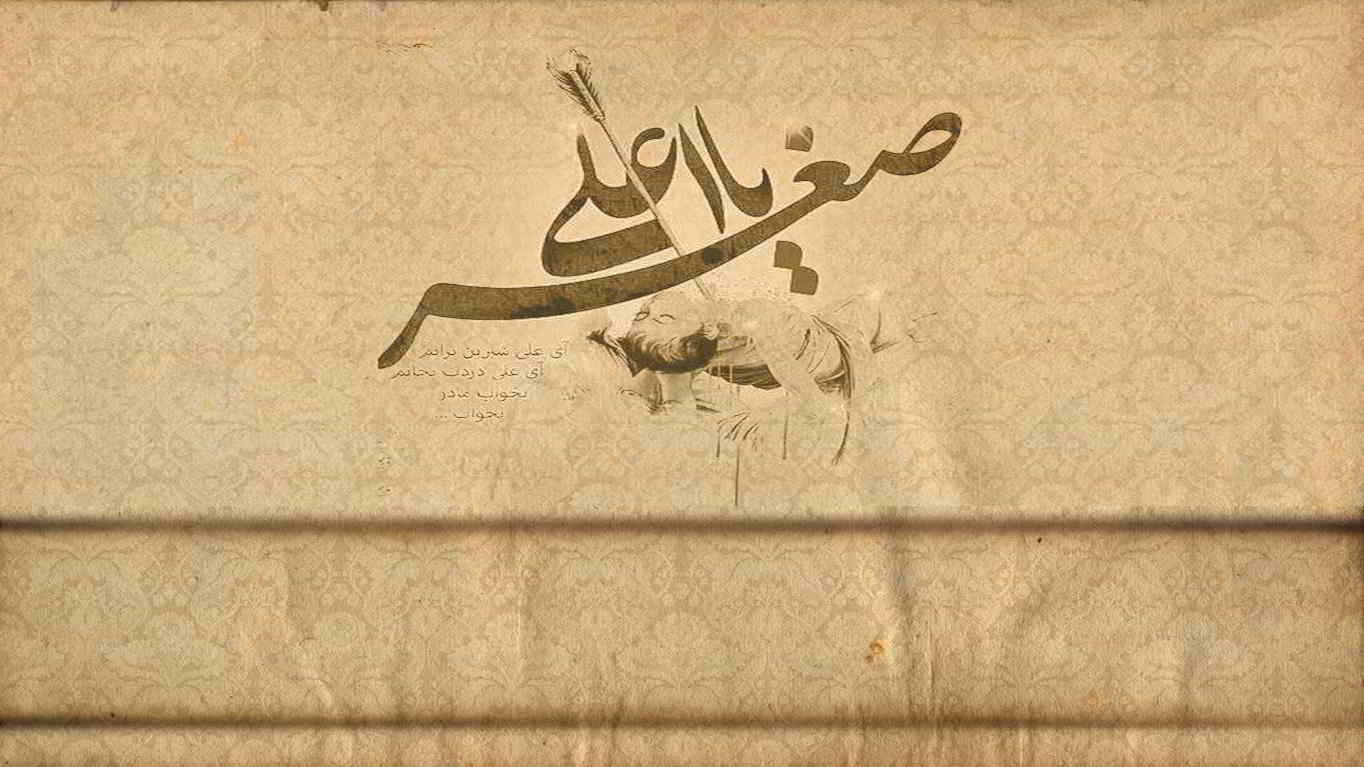 یا علی اصغر
آی علی شیرین برایم
آی علی دردت بجانم
بخواب مادر
بخواب ...